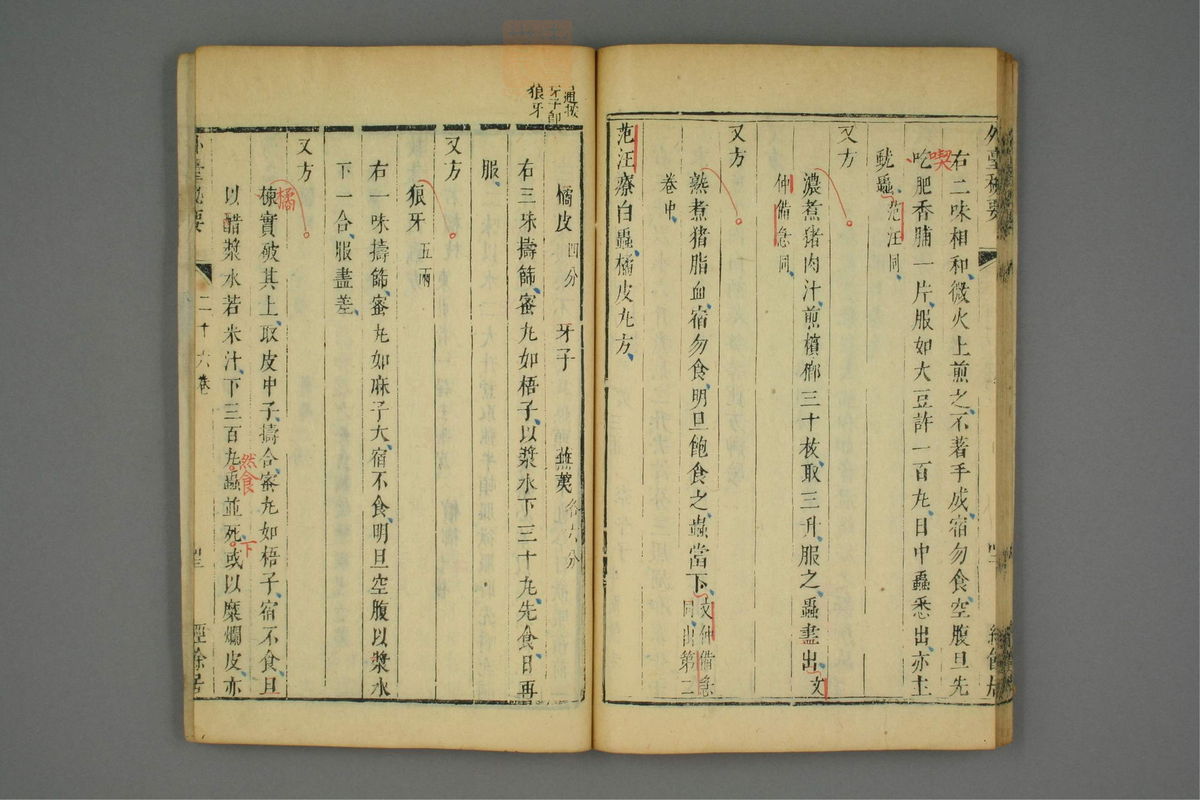 外臺秘要
右二味相和微火上煎之不著手成宿勿食空腹旦先
喫
吃肥香脯一片服如大豆許一百丸日中蟲悉出亦主
蚘蟲范汪同
又方
濃煮猪肉汁煎檳榔三十枚取三升服之蟲盡出文
仲備急同
又方
熟煮猪脂血宿勿食明旦飽食之蟲當下文仲備急
同出第二
卷中
范汪療白蟲橘皮丸方
通按
牙子即
狼牙
橘皮四分 牙子 蕪荑各六分
右三味擣篩蜜丸如梧子以漿水下三十丸先食日再
服
又方
狼牙五兩
右一味擣篩蜜丸如麻子大宿不食明旦空腹以漿水
下一合服盡差
又方
橘
榱實破其上取皮中子擣合蜜丸如梧子宿不食旦
然食
下
以醋漿水若米汁下三百丸蟲並死或以糜爛皮亦
外臺秘要
二十六卷
經餘居